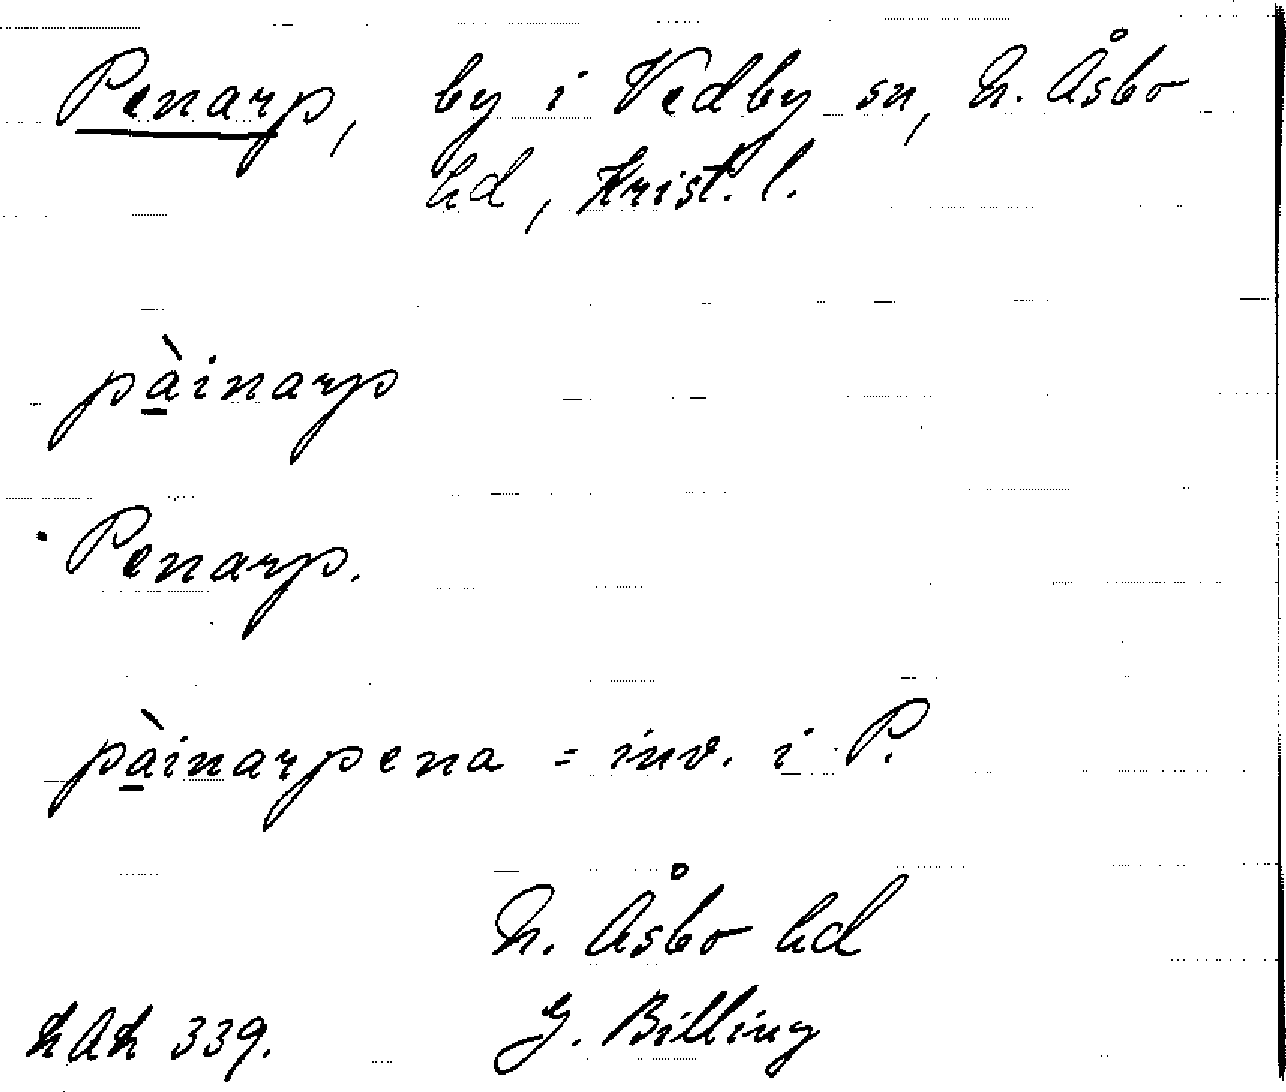 Penarp, by i Vedby sn, N. Åsbo
hd, Krist. l.
pàinarp
Penarp.
pàinarpena = inv. i P.
N. Åsbo hd
339. G. Billing